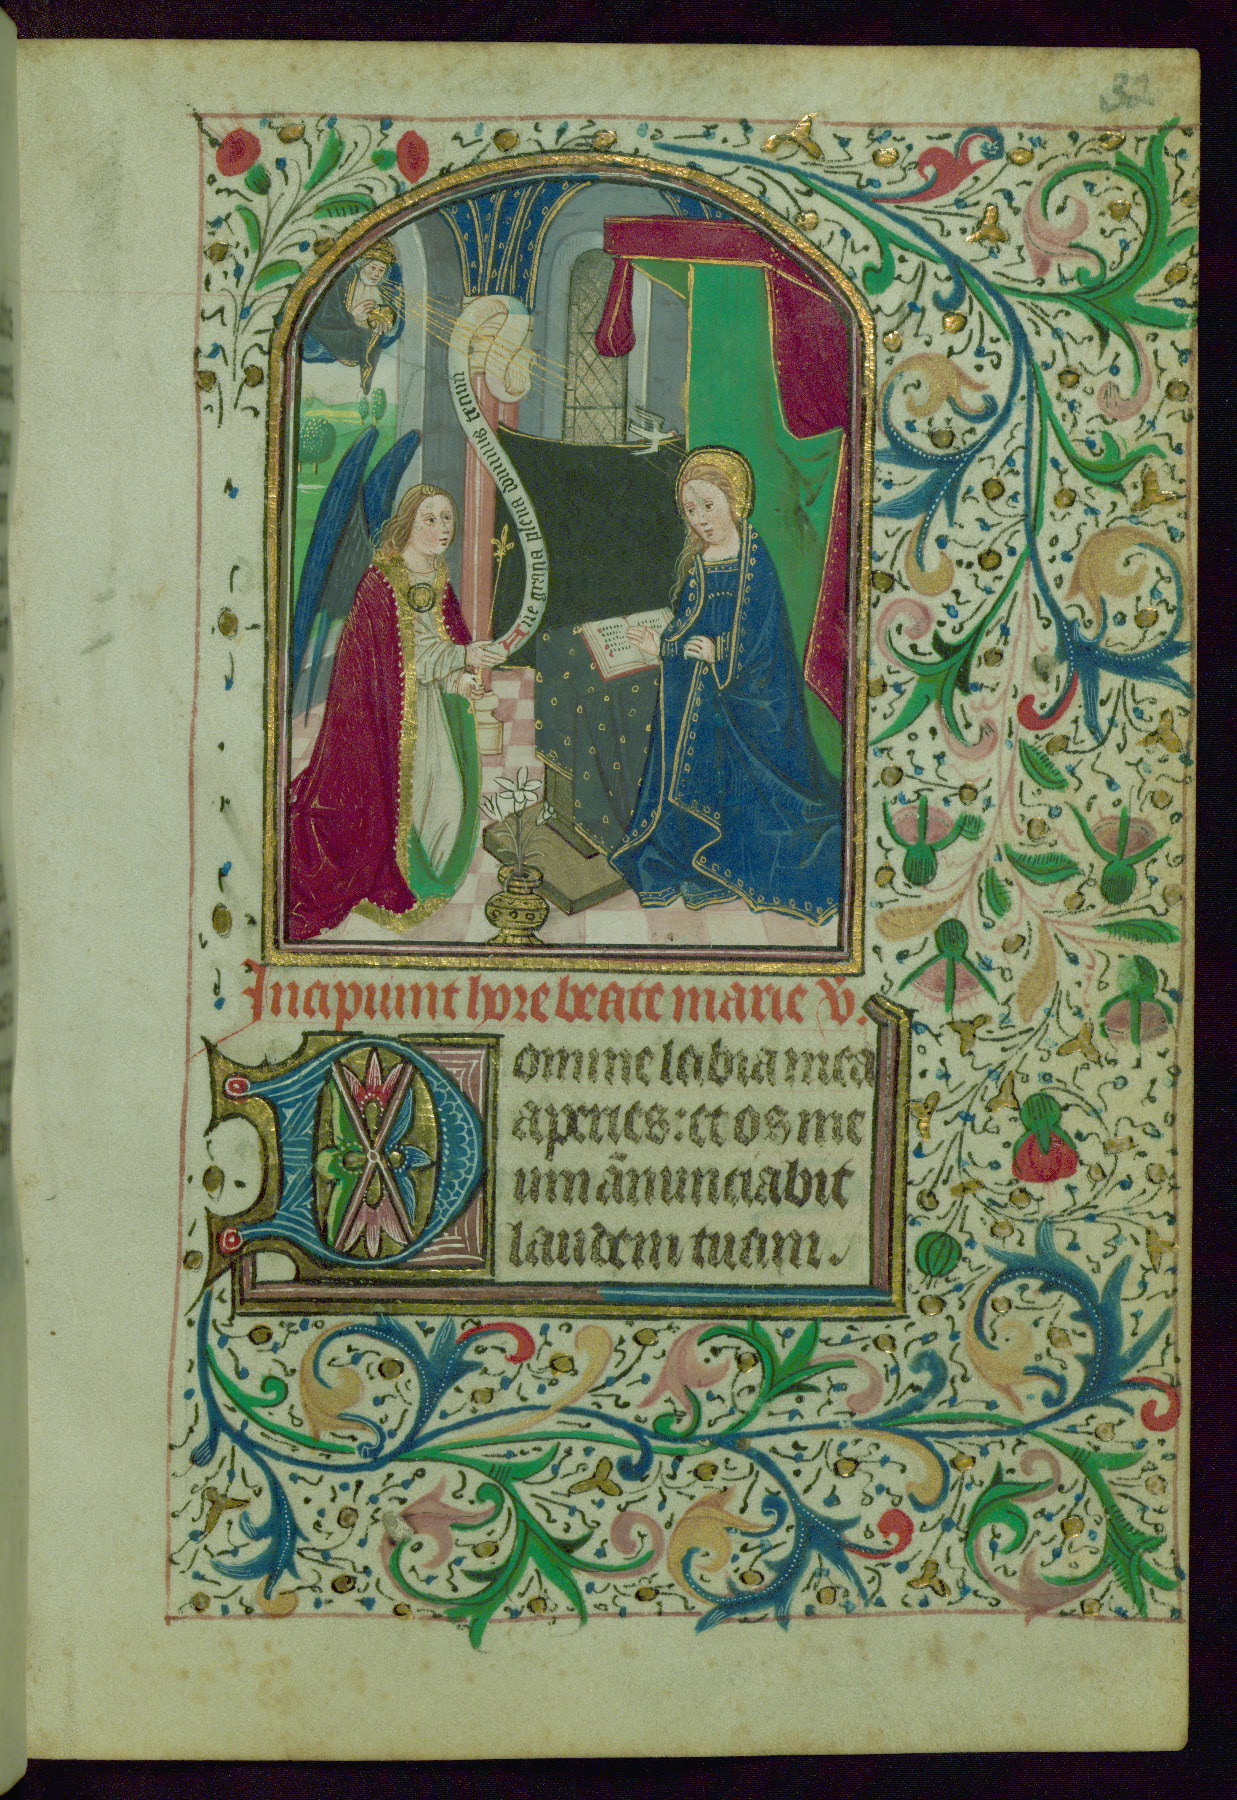 32
Aue gratia plena dominus tecum
Incipiunt hore beate marie v.
Domine labia mea
aperies: et os me
um ãnunciabit
laudem tuam.